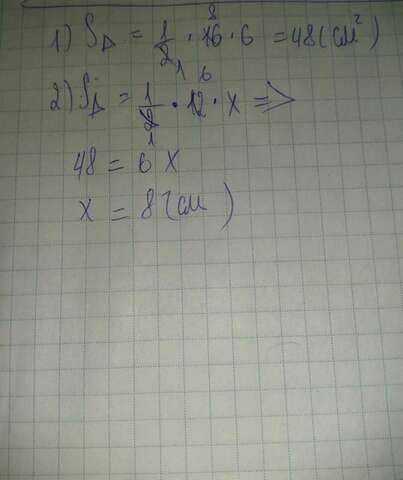 1) S△ = 1/2 · 16 8 · 6 = 48 (см²)
2) S△ = 1/2 1 · 12 6 · x =>
48 = 6 x
x = 8 (см)